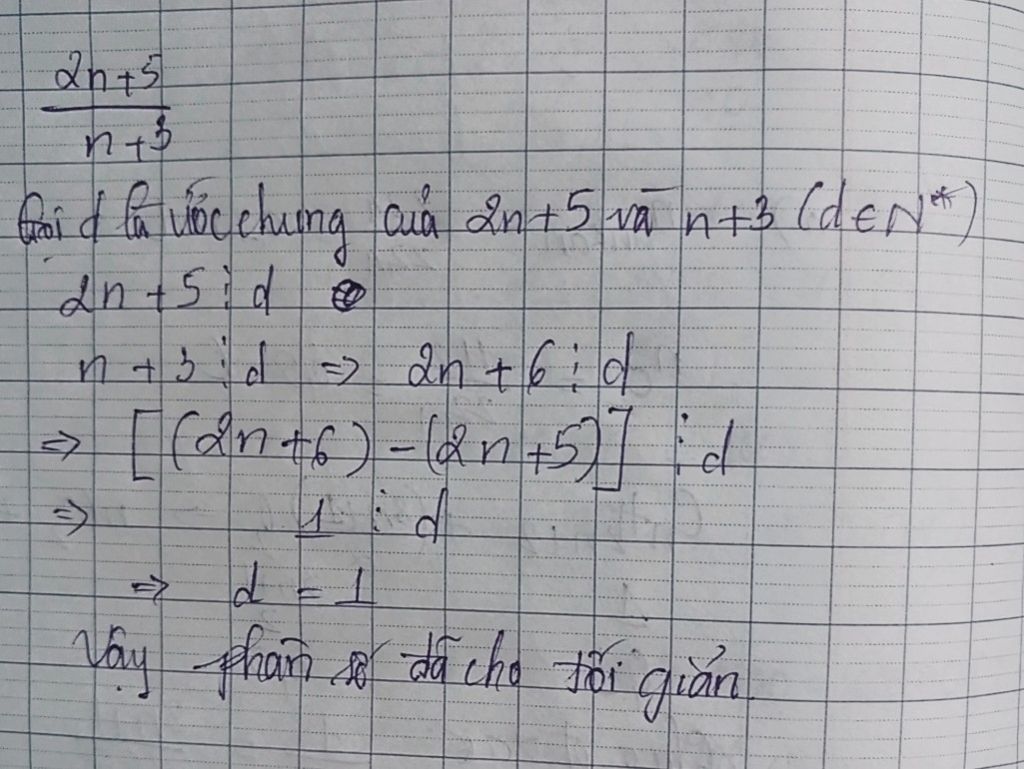 2n+5
n+3
Gọi d là ước chung của 2n+5 và n+3 (d∈N*)
2n+5⋮d
n+3⋮d ⇒ 2n+6⋮d
⇒ [(2n+6)-(2n+5)] ⋮d
⇒ 1⋮d
⇒ d = 1
Vậy phân số đã cho tối giản